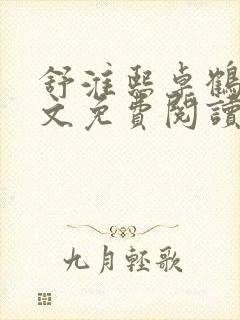 舒淮熙卓鶴
文免費閱讀
九月輕歌